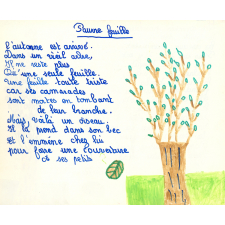 Pauvre feuille
L'automne est arrivé.
Dans un vieil arbre,
Il ne reste plus
Qu'une seule feuille.
Une feuille toute triste
car ses camarades
sont mortes en tombant
de leur branche.
Mais, voilà un oiseau.
Il la prend dans son bec
et l'emmène chez lui
pour faire une couverture
à ses petits